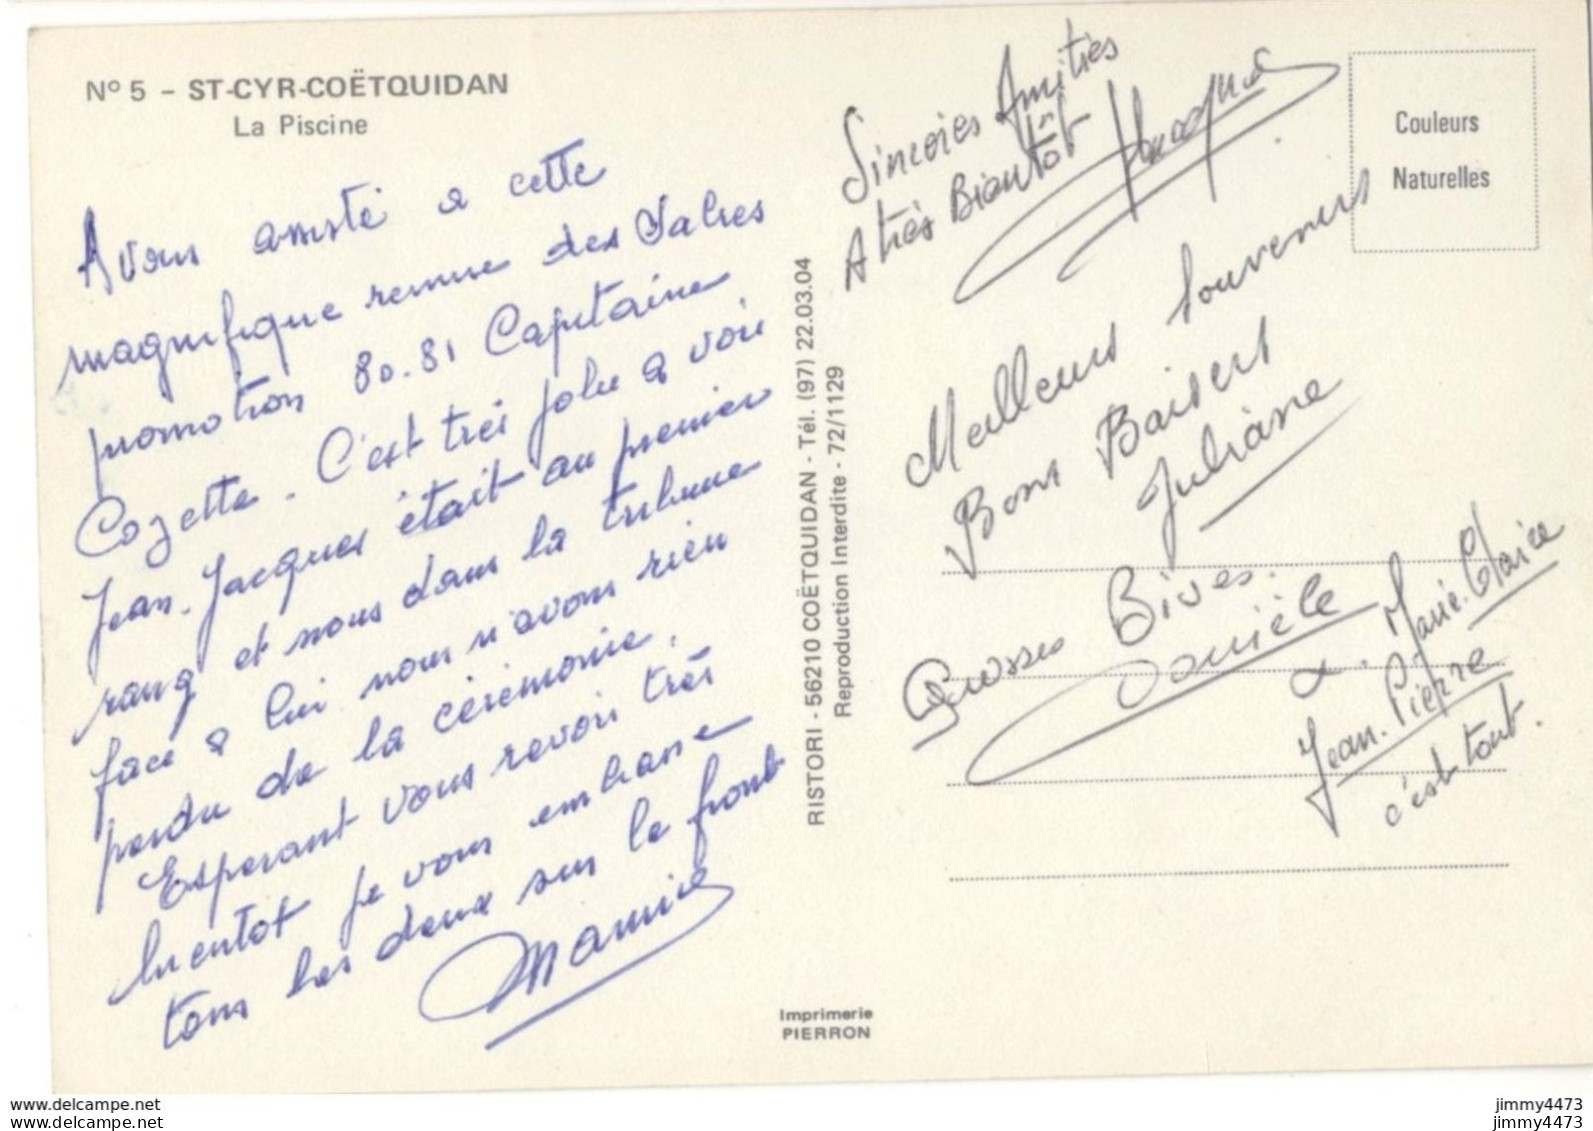 N° 5 - ST-CYR-COËTQUIDAN
La Piscine
Avons assisté a cette
magnifique remise des Sabres
promotion 80.81 Capitaine
Cozette. C'est très jolie a voir
Jean-Jacques était au premier
rang et nous dans la tribune
face a lui nous n'avons rien
perdu de la cérémonie.
Esperant vous revoir très
bientôt je vous embrasse
tous les deux sur le front
Mauricio
RISTORI - 56210 COËTQUIDAN - Tél. (97) 22.03.04
Reproduction Interdite - 72/1129
Imprimerie
PIERRON
Sincères Amitiés
A très Bientôt
Couleurs
Naturelles
Meilleurs Souvenirs
Bons Baisers
Juliane
Grosses Bises.
Danièle
&. Marie.Claire
Jean.Pierre
c'est tout.
delcampe.net
delcampe.net
jimmy4473
jimmy4473